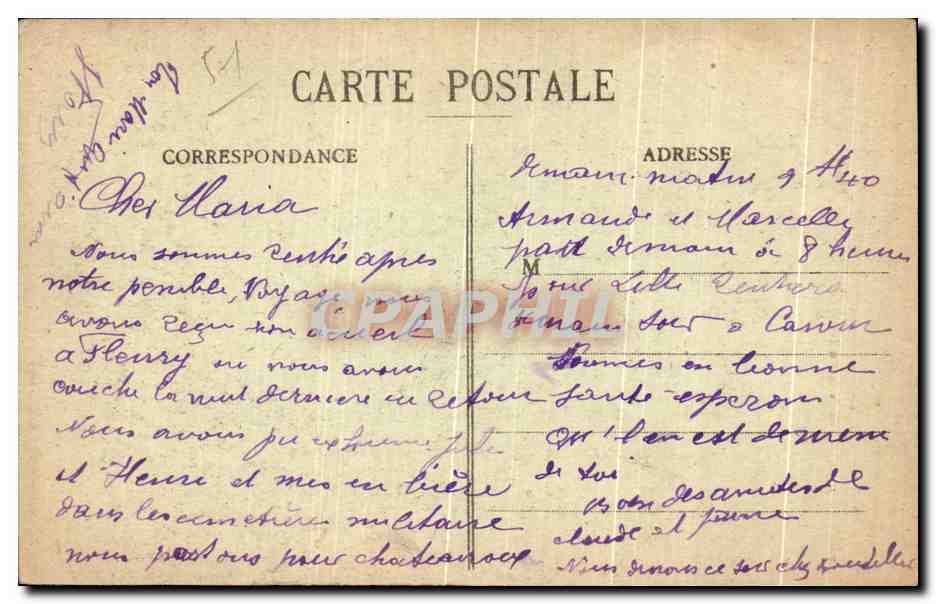 51
CARTE POSTALE
CORRESPONDANCE
ADRESSE
M
Cher Maria
Nous sommes rentré apres
notre penible Voyage nous
avons reçu bon acueil
a Fleury ou nous avons
couche la nuit derniere en retour
Nous avons pu exhumé
et Henri et mes en bière
dans les cimetière militaire
nous partons pour chateauroux
demain matin 9 H 40
Armande et Marcelle
part demain a 8 heures
pour Lille rentrera
demain soir a
sommes en bonne
sante esperons
qu'il en est de meme
de toi
des amities de
claude et pierre
Nous dinons ce soir chez
CPAPHIL